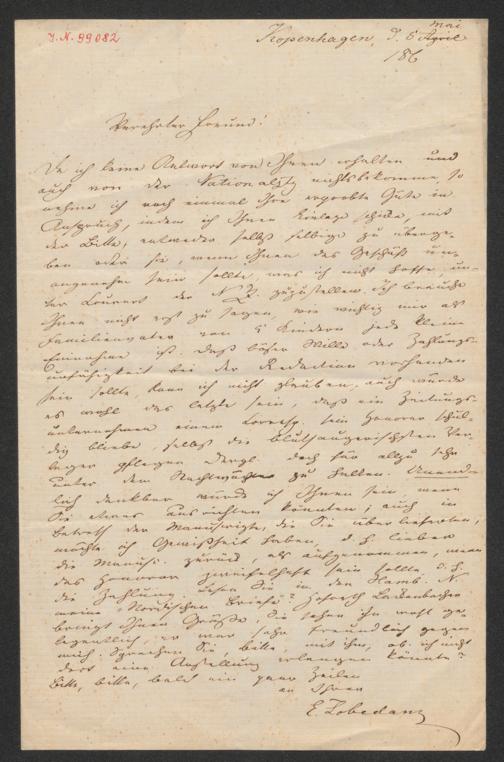 J.N. 99082
Kopenhagen, d. 6 Mai April
186
Verehrter Freund!
Da ich keine Antwort von Ihnen erhalten und
auch von der Nationalztg nichts bekomme, so
nehme ich noch einmal Ihre erprobte Güte in
Anspruch, indem ich Ihnen Einlage schicke, mit
der Bitte, entweder selbst selbige zu überge-
ben oder sie, wenn Ihnen das Geschäft un-
angenehm sein sollte, was ich nicht hoffe, un-
ter Couvert der N Z. zuzustellen. Ich brauche
Ihnen nicht erst zu sagen, wie wichtig mir als
Familienvater von 5 Kindern jede kleine
Einnahme ist. Daß böser Wille oder Zahlungs-
unfähigkeit bei der Redaction vorhanden
sein sollte, kann ich nicht glauben, auch würde
es wohl das letzte sein daß ein Zeitungs-
unternehmen einem Corresp. sein Honorar schul-
dig bliebe, selbst die blutsaugerischsten Ver-
leger pflegen dergl. doch für allzu sehr
unter dem zu halten. Unend-
lich dankbar würde ich Ihnen sein, wenn
Sie etwas ausrichten könnten; auch in
Betreff der Manuscripte, die Sie überlieferten,
möchte ich Gewißheit haben, d. h. lieber
die Manusc. zurück, als aufgenommen, wenn
das Honorar zweifelhaft sein sollte d. h.
die Zahlung. Lesen Sie in den Hamb. N
meine „Nordischen Briefe"? Hofrath
bringt Ihnen Grüße, Sie sehen ihn wohl ge-
legentlich, er war sehr freundlich gegen
mich. Sprechen Sie, bitte, mit ihm, ob ich nicht
dort eine Anstellung erlangen könnte?
Bitte, bitte, bald ein paar Zeilen
an Ihren
E. Lobedanz